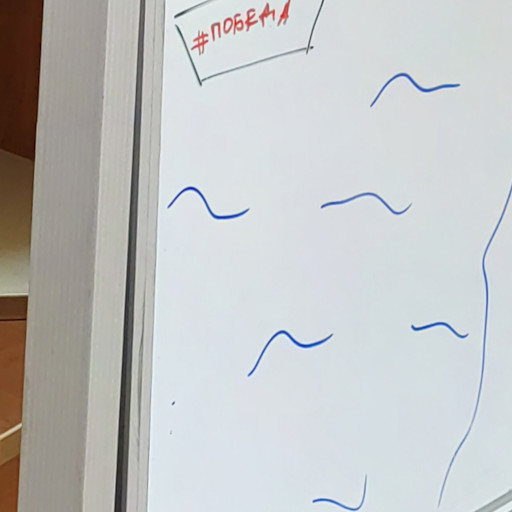 #ПОБЕДА